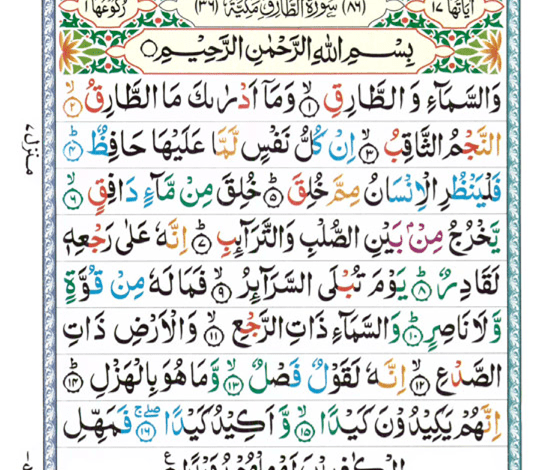 اٰیَاتُهَا ١٧ (٨٦) سُوْرَةُ الطَّارِقِ مَكِّیَّةٌ (٣٦) رُكُوْعُهَا ١
بِسْمِ اللّٰهِ الرَّحْمٰنِ الرَّحِیْمِ
وَالسَّمَآءِ وَ الطَّارِقِ ۙ﴿١﴾ وَمَاۤ اَدْرٰىكَ مَا الطَّارِقُ ۙ﴿٢﴾
النَّجْمُ الثَّاقِبُ ۙ﴿٣﴾ اِنْ كُلُّ نَفْسٍ لَّمَّا عَلَیْهَا حَافِظٌ ؕ﴿٤﴾
فَلْیَنْظُرِ الْاِنْسَانُ مِمَّ خُلِقَ ؕ﴿٥﴾ خُلِقَ مِنْ مَّآءٍ دَافِقٍ ۙ﴿٦﴾
یَّخْرُجُ مِنْۢ بَیْنِ الصُّلْبِ وَالتَّرَآىِٕبِ ؕ﴿٧﴾ اِنَّهٗ عَلٰى رَجْعِهٖ
لَقَادِرٌ ؕ﴿٨﴾ یَوْمَ تُبْلَى السَّرَآىِٕرُ ۙ﴿٩﴾ فَمَا لَهٗ مِنْ قُوَّةٍ
وَّ لَا نَاصِرٍ ؕ﴿١٠﴾ وَالسَّمَآءِ ذَاتِ الرَّجْعِ ۙ﴿١١﴾ وَالْاَرْضِ ذَاتِ
الصَّدْعِ ۙ﴿١٢﴾ اِنَّهٗ لَقَوْلٌ فَصْلٌ ۙ﴿١٣﴾ وَّمَا هُوَ بِالْهَزْلِ ؕ﴿١٤﴾
اِنَّهُمْ یَكِیْدُوْنَ كَیْدًا ۙ﴿١٥﴾ وَّ اَكِیْدُ كَیْدًا ۚۖ﴿١٦﴾ فَمَهِّلِ
منزل ٧